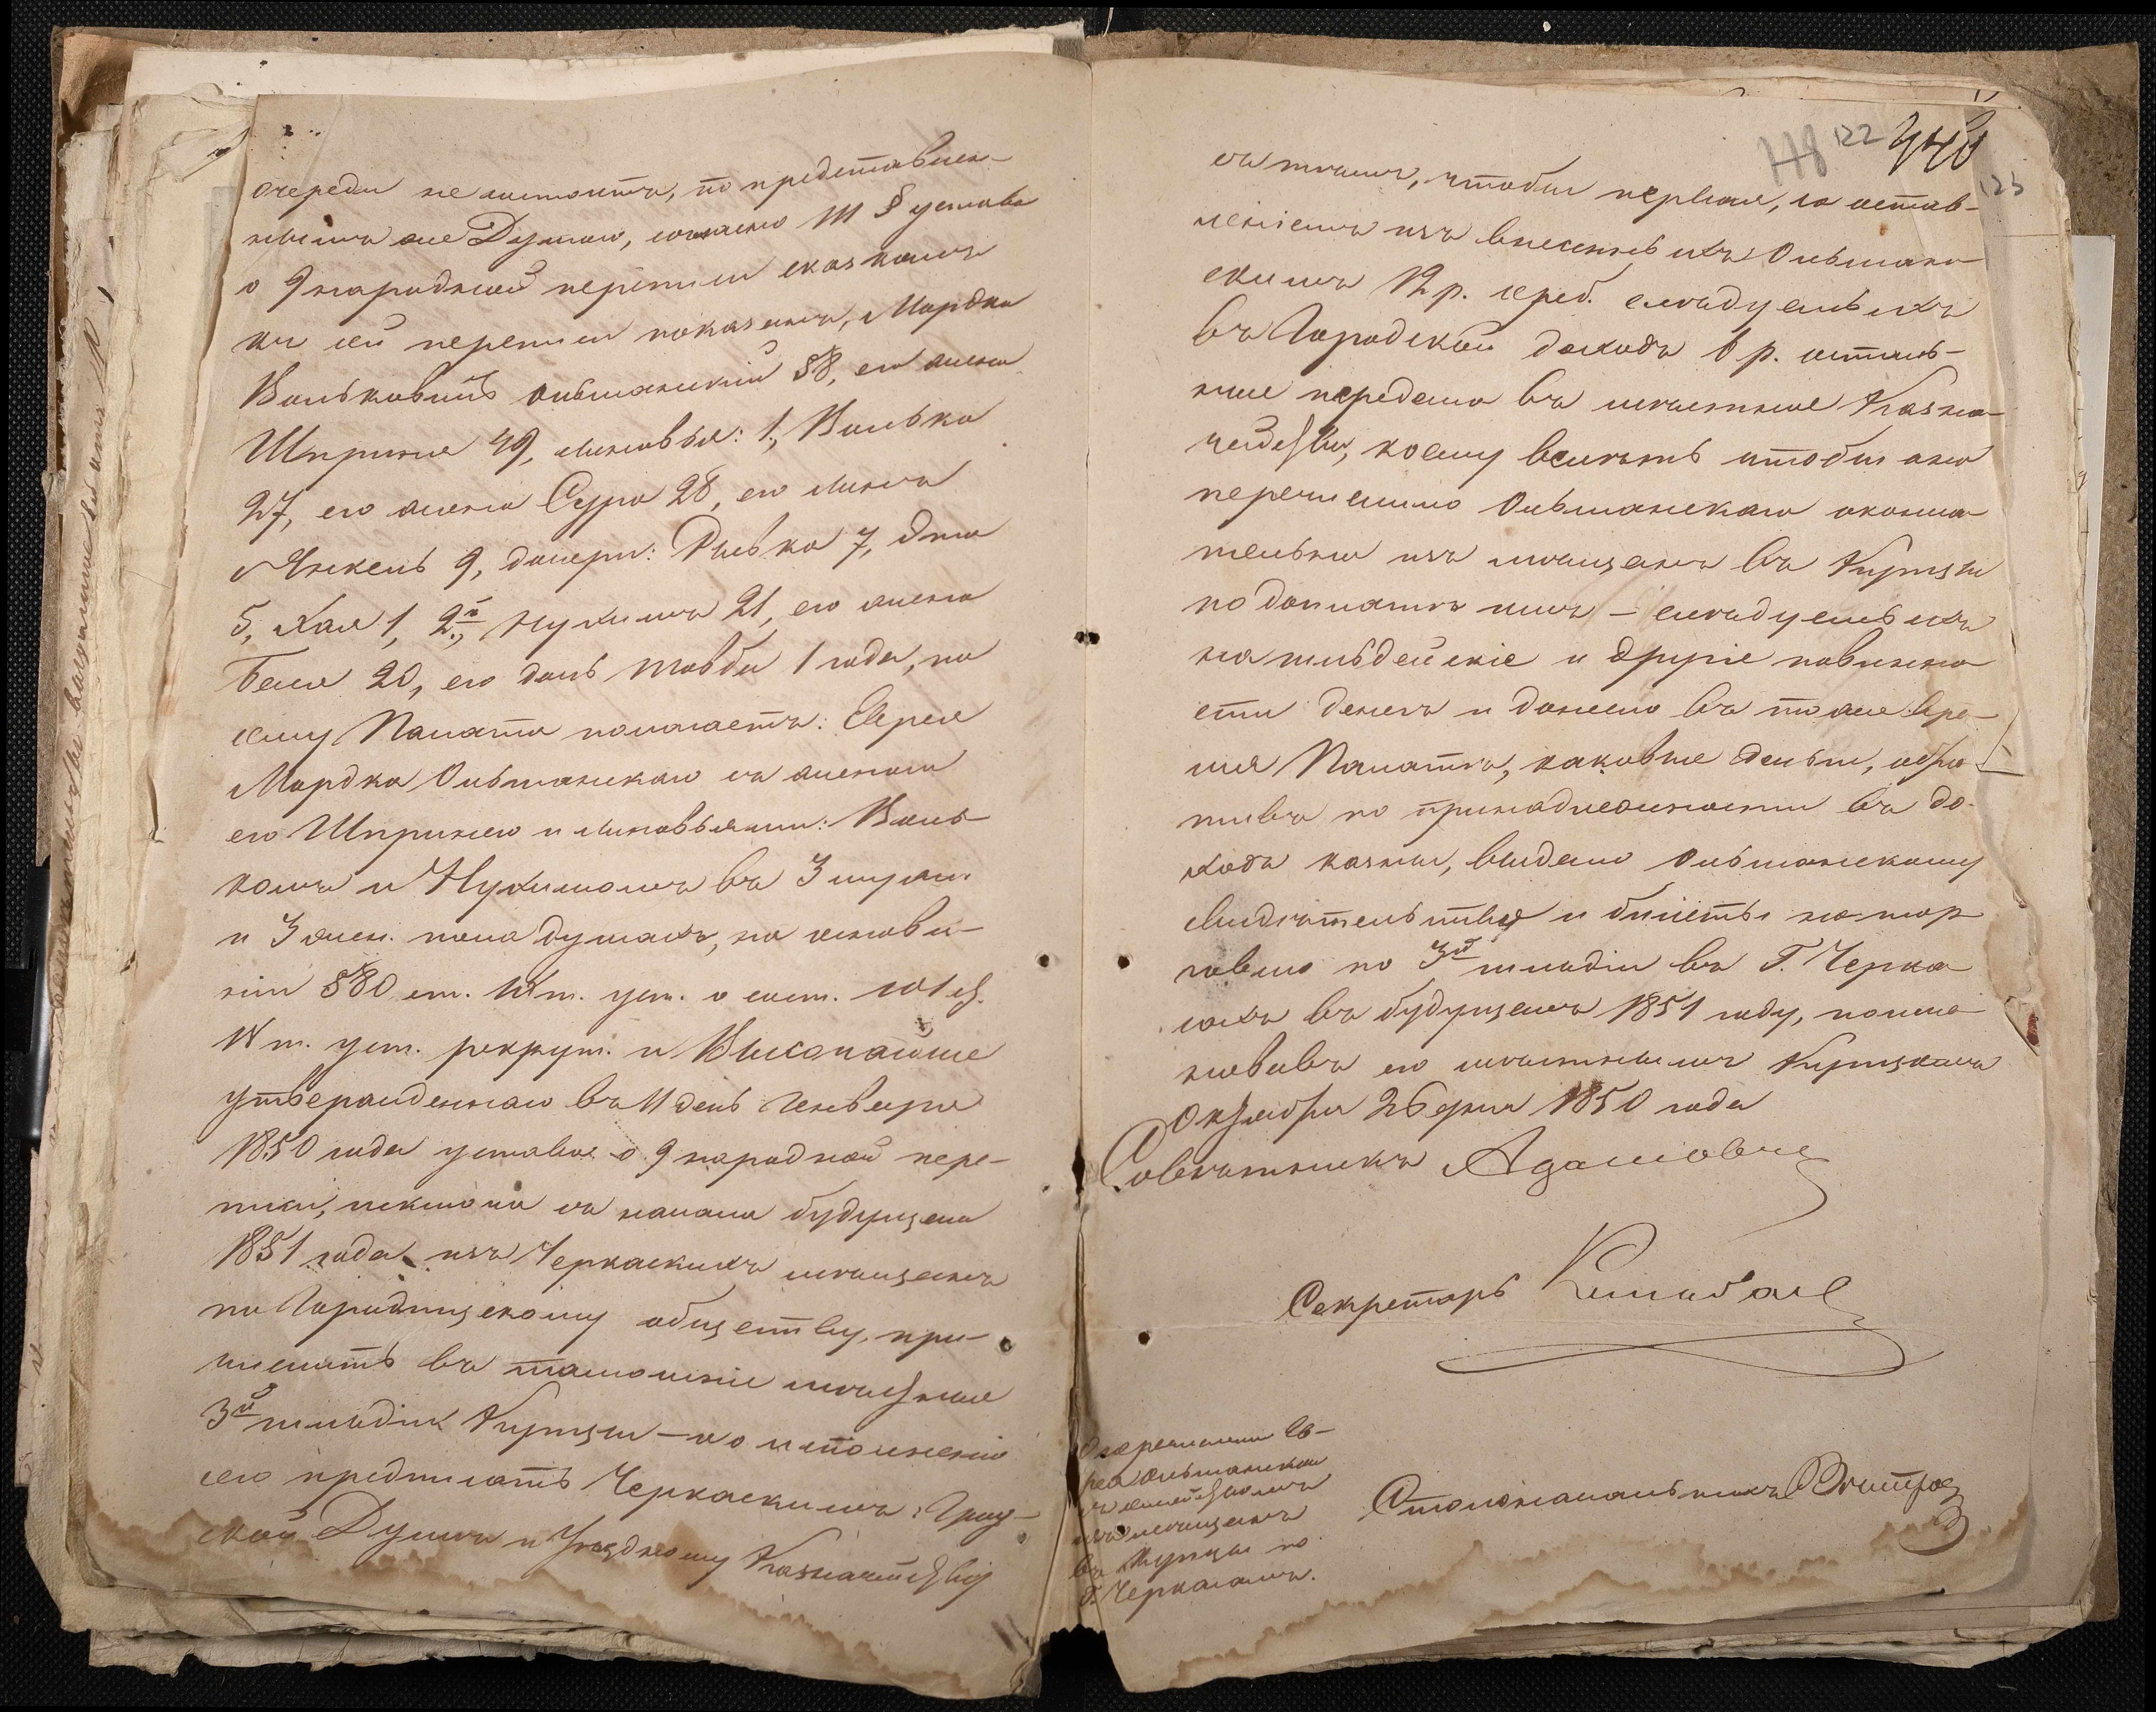 очереди не состоитъ, по представлен-
нымъ же Думою, согласно 111 § устава
о 9 народной переписи сказкамъ
къ сей переписи показанъ, Мордко
Вольковичъ Ольшанскій 58, его жена
Шпринца 49, сыновья: 1., Волько
27, его жена Сура 28, его сынъ
Янкель 9, дочери: Рывка 7,
5, Хая 1, 2й., Нухимъ 21, его жена
Бейла 20, его дочь Товба 1 года, по
сему Палата полагаетъ: Еврея
Мордка Ольшанскаго съ женою
его Шпринцею и сыновьями: Воль-
комъ и Нухимомъ въ 3 муж.
и 3 жен. пола душахъ, на основа-
ніи 580 ст. т. уст. о сост. св.
IV т. уст. рекрут. и Высочайше
утвержденнаго въ 11 день Генваря
1850 года устава о 9 народной пере-
писи, исключа съ начала будущаго
1851 года изъ Черкаскихъ мещанъ
по Городищскому обществу, при-
числить въ тамошніе местные
3й гильдіи Купцы – по исполненію
сего предписать Черкаскимъ: Град-
ской Думѣ и Уѣздному Казначейству
122
съ тѣмъ, чтобы первая, со остав-
леніемъ изъ внесенныхъ Ольшан-
скимъ 12 р. сереб. слѣдуемыхъ
въ Городской доходъ 6 р. осталь-
ные передала въ мѣстное Казна-
чейство, коему велѣть чтобы оно
перечислило Ольшанскаго оконча-
тельно изъ мѣщанъ въ Купцы
по доплатѣ имъ – слѣдуемыхъ
на гильдейскіе и другіе повинно-
сти денегъ и донесло въ тоже вре-
мя Палатѣ, каковые деньги, обра-
тивъ по принадлежности въ до-
ходъ казны, выдало Ольшанскому
свидѣтельство и билетъ на тор-
говлю по 3й гильдіи въ Г. Черка-
сахъ въ будущемъ 1851 году, поиме-
новавъ его мѣстнымъ Купцомъ
Октября 26 дня 1850 года
Совѣтникъ
Секретарь
О перечисленіи Ев-
рея Ольшанскаго
съ семействомъ
изъ мѣщанъ
въ Купцы по
Г. Черкасамъ.
Столоначальникъ